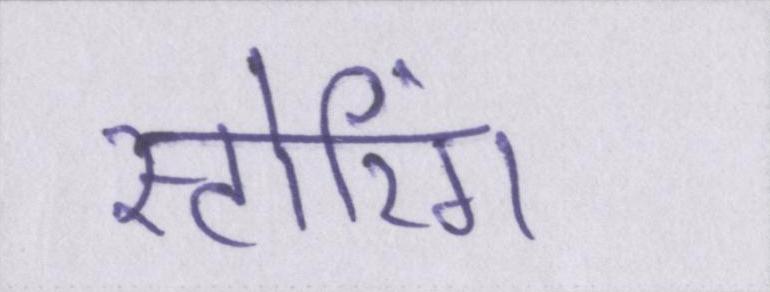 स्टोरिंग